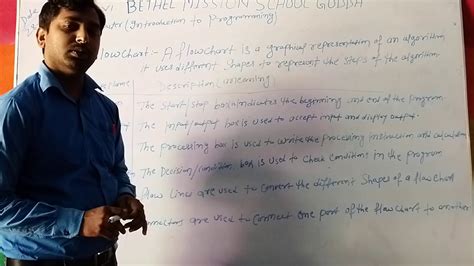 BETHEL MISSION SCHOOL GODDA
(Introduction to Programming
Flowchart - A flowchart is a graphical representation of an algorithm,
it uses different shapes to represent the steps of the algorithm.
Name Description (Meaning)
The start/stop box indicates the beginning and end of the program.
The input/output box is used to accept input and display output.
The processing box is used to write the processing instruction and calculation
The Decision/condition box is used to check conditions in the program
flow lines are used to connect the different shapes of a flowchart
are used to connect one part of the flowchart to another